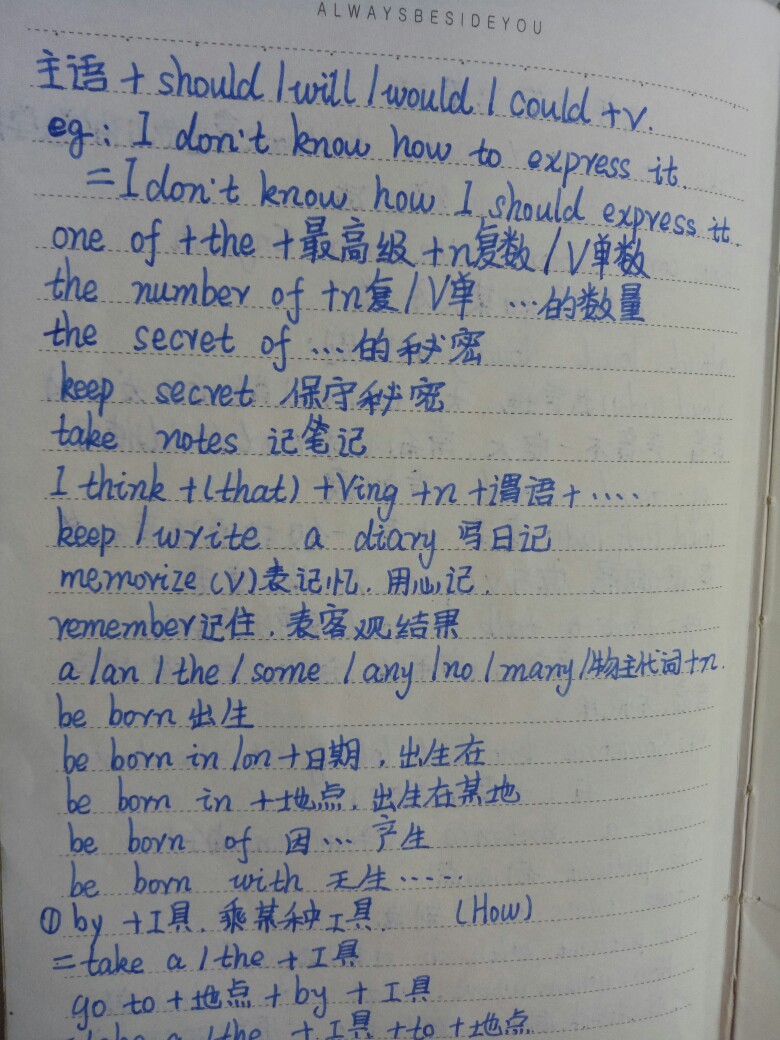 ALWAYSBESIDEYOU
主语 + should / will / would / could + v.
eg: I don't know how to express it.
= I don't know how I should express it.
one of + the + 最高级 + n复数 / V单数
the number of + n复 / V单 …的数量
the secret of …的秘密
keep secret 保守秘密
take notes 记笔记
I think + (that) + Ving + n + 谓语 + ……
keep / write a diary 写日记
memorize (V) 表记忆. 用心记.
remember 记住. 表客观结果
a / an / the / some / any / no / many / 物主代词 + n.
be born 出生
be born in / on + 日期, 出生在
be born in + 地点, 出生在某地
be born of 因… 产生
be born with 天生……
① by + 工具. 乘某种工具 (How)
= take a / the + 工具
go to + 地点 + by + 工具
= take a / the + 工具 + to + 地点